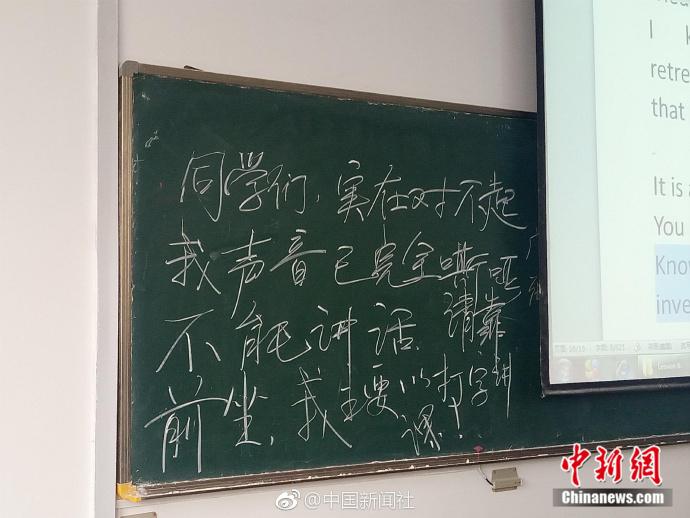 同学们，实在对不起
我声音已完全嘶哑
不能讲话，请靠
前坐，我主要以打字讲
课！
I k
retre
that
It is a
You
Know
inve
@中国新闻社
中新网
Chinanews.com